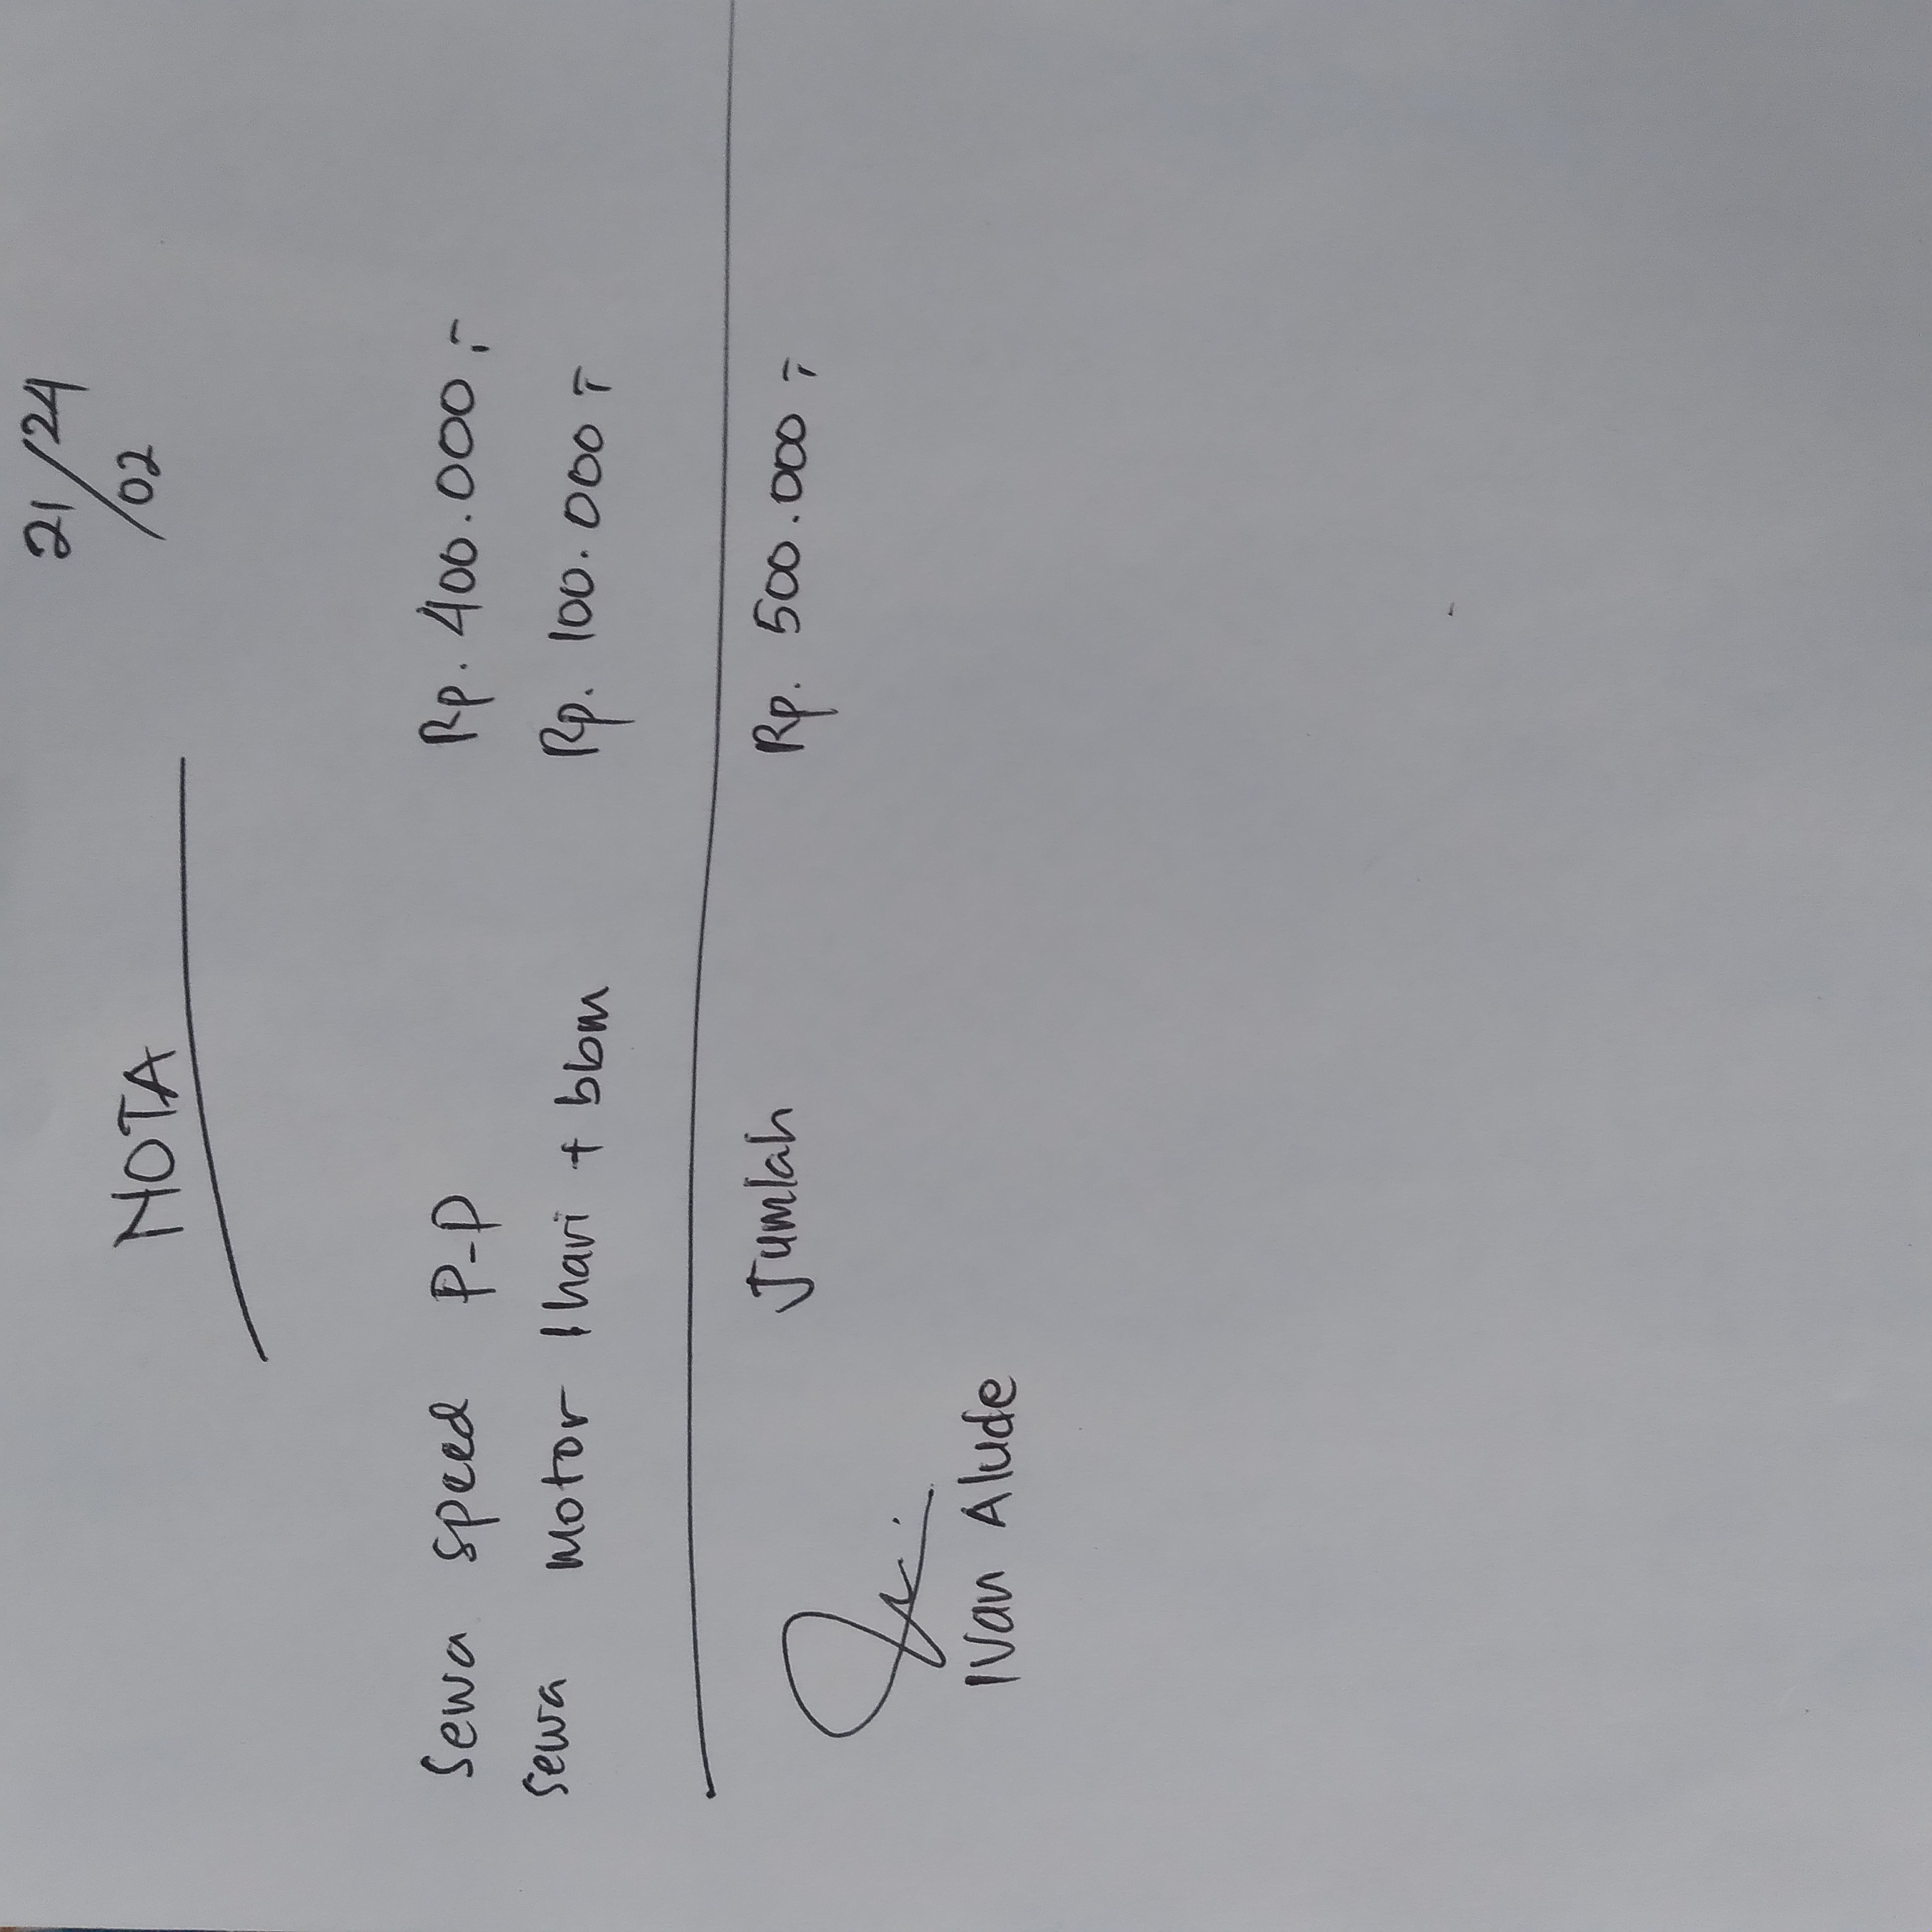 21/24
/02
NOTA
Sewa speed P-P Rp. 400.000,-
Sewa Motor 1 hari + bbm Rp. 100.000,-
Jumlah Rp. 500.000,-
Ivan Alude